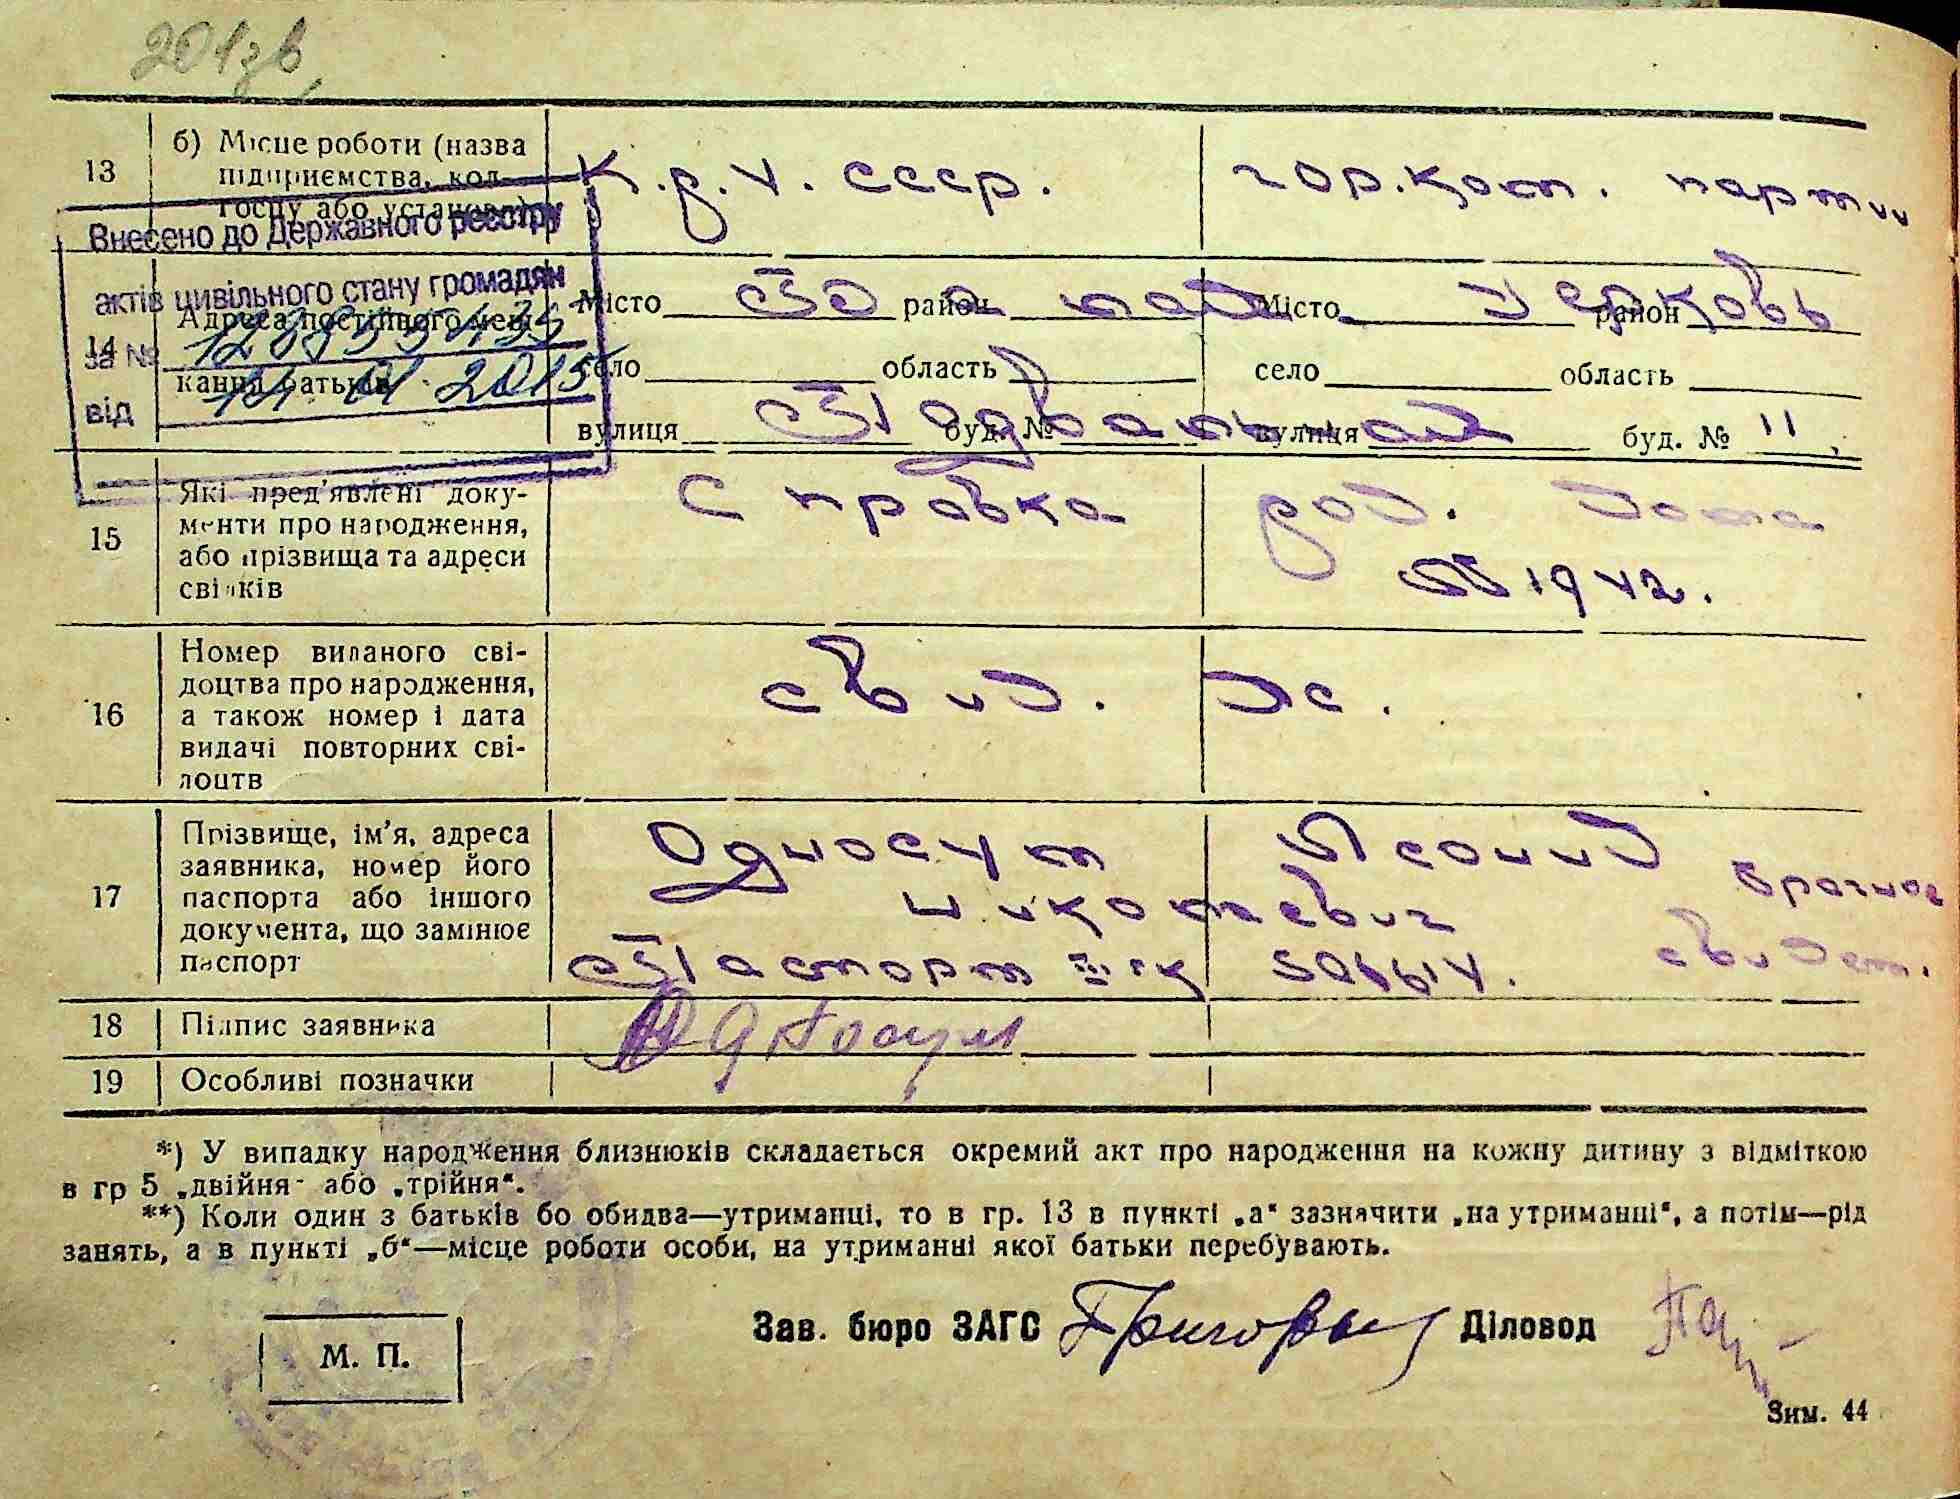 201зв
13 б) Місце роботи (назва підприємства, кол-
госпу або установи)
К.д.У. СССР. гор.ком. партии
Внесено до Державного реєстру
актів цивільного стану громадян
за №
від 2015
14 Адреса постійного меш-
кання батьків
Місто район Місто Церковь район
село область село область
вулиця буд. № вулиця буд. № 11
15 Які пред'явлені доку-
менти про народження,
або прізвища та адреси
свідків
Справка род. дома
1942.
16 Номер виданого сві-
доцтва про народження,
а також номер і дата
видачі повторних сві-
доцтв
свид.
17 Прізвище, ім'я, адреса
заявника, номер його
паспорта або іншого
документа, що замінює
паспорт
Односум Леонид
Николаевич
Паспорт III
свидет.
18 Підпис заявника
19 Особливі позначки
*) У випадку народження близнюків складається окремий акт про народження на кожну дитину з відміткою
в гр 5 „двійня" або „трійня“.
**) Коли один з батьків бо обидва—утриманці, то в гр. 13 в пункті „а“ зазначити „на утриманні“, а потім—рід
занять, а в пункті „б“—місце роботи особи, на утриманні якої батьки перебувають.
М. П.
Зав. бюро ЗАГС Діловод
Зим. 44